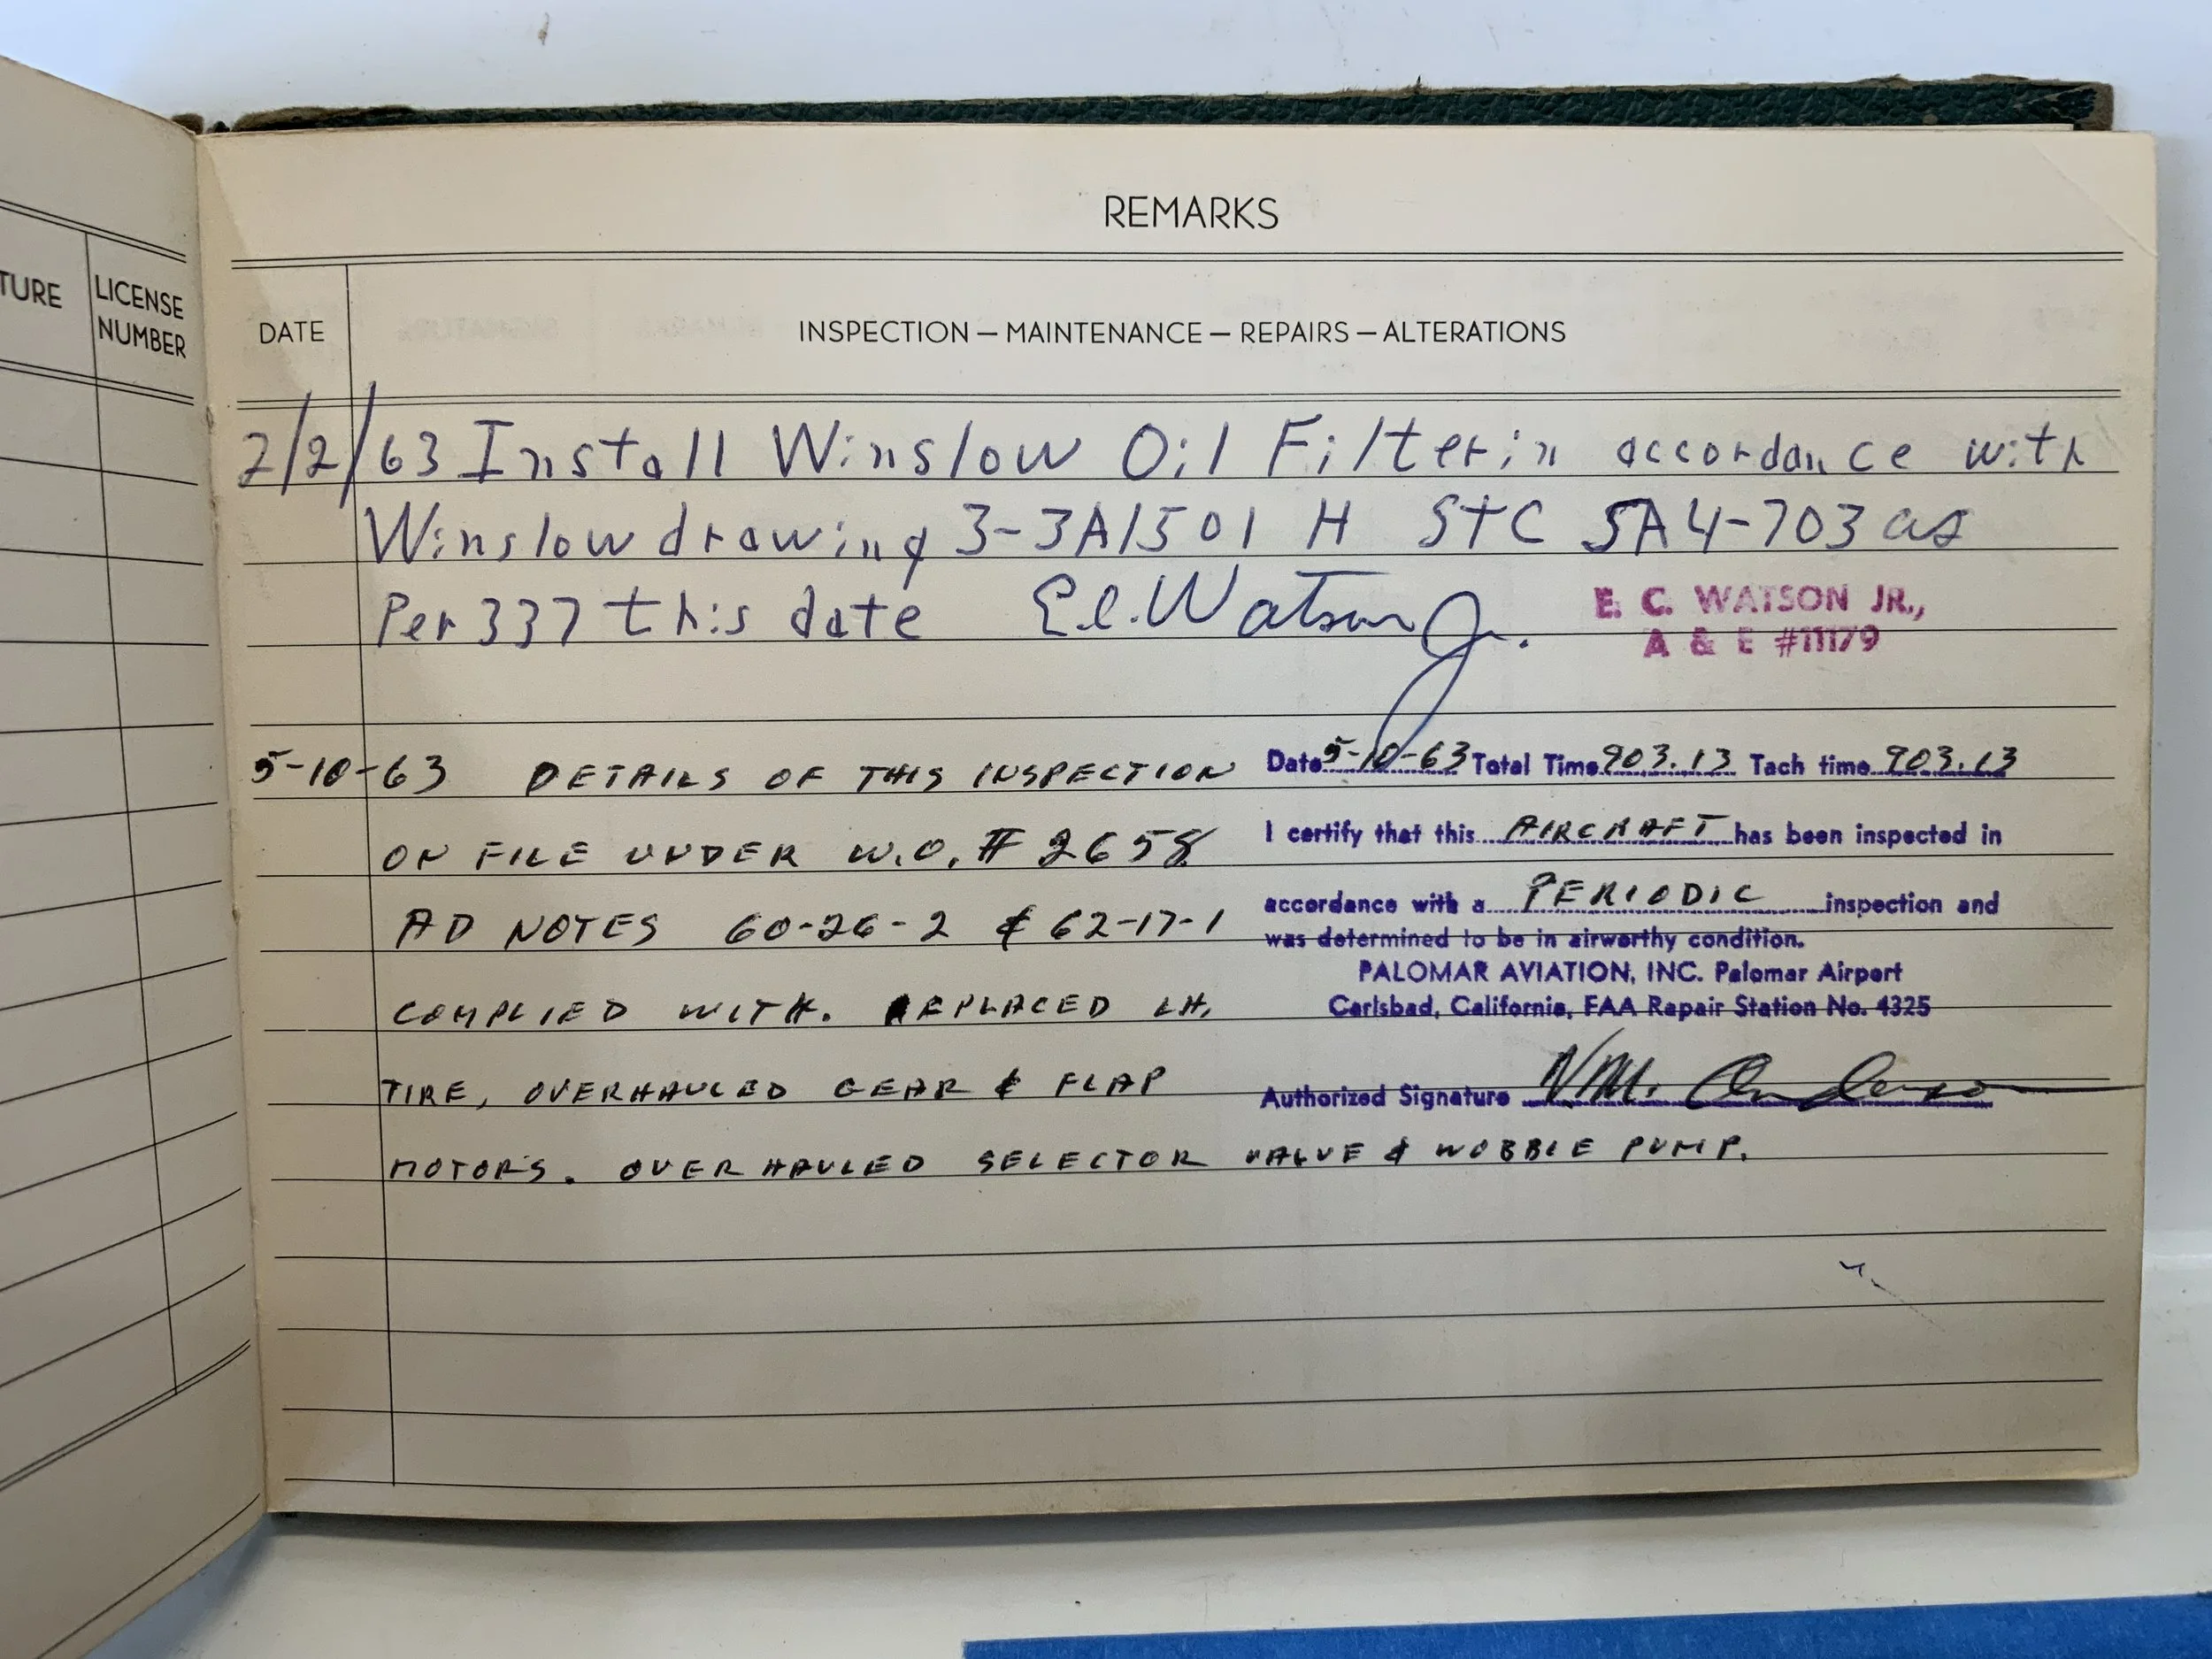 REMARKS
TURE
LICENSE
NUMBER
DATE
INSPECTION — MAINTENANCE — REPAIRS — ALTERATIONS
2/2/63 Install Winslow Oil Filter in accordance with
Winslow drawing 3-3A1501 H STC SA4-703 as
Per 337 this date E.C. Watson Jr.
E. C. WATSON JR.,
A & E #11179
5-10-63 DETAILS OF THIS INSPECTION
ON FILE UNDER W.O. # 2658
AD NOTES 60-26-2 & 62-17-1
COMPLIED WITH. REPLACED LH.
TIRE, OVERHAULED GEAR & FLAP
MOTORS. OVERHAULED SELECTOR VALVE & WOBBLE PUMP.
Date 5-10-63 Total Time 903.13 Tach time 903.13
I certify that this AIRCRAFT has been inspected in
accordance with a PERIODIC inspection and
was determined to be in airworthy condition.
PALOMAR AVIATION, INC. Palomar Airport
Carlsbad, California, FAA Repair Station No. 4325
Authorized Signature N.M. Anderson